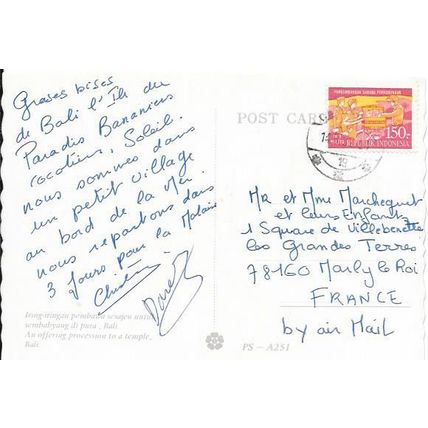 Grosses bises
de Bali l'Ile du
Paradis Bananiers
cocotiers, Soleil.
nous sommes dans
un petit village
au bord de la Mer.
nous repartons dans
3 jours pour la Malaisie
Iring-iringan pembawa sesajen untuk
sembahyang di pura, Bali.
An offering procession to a temple,
Bali
POST CARD
150.-
REPUBLIK INDONESIA
Mr et Mme Marcheguet
et leurs Enfants
1 Square de Villebenette
les Grandes Terres
78160 Marly le Roi
FRANCE
by air Mail
PS - A251